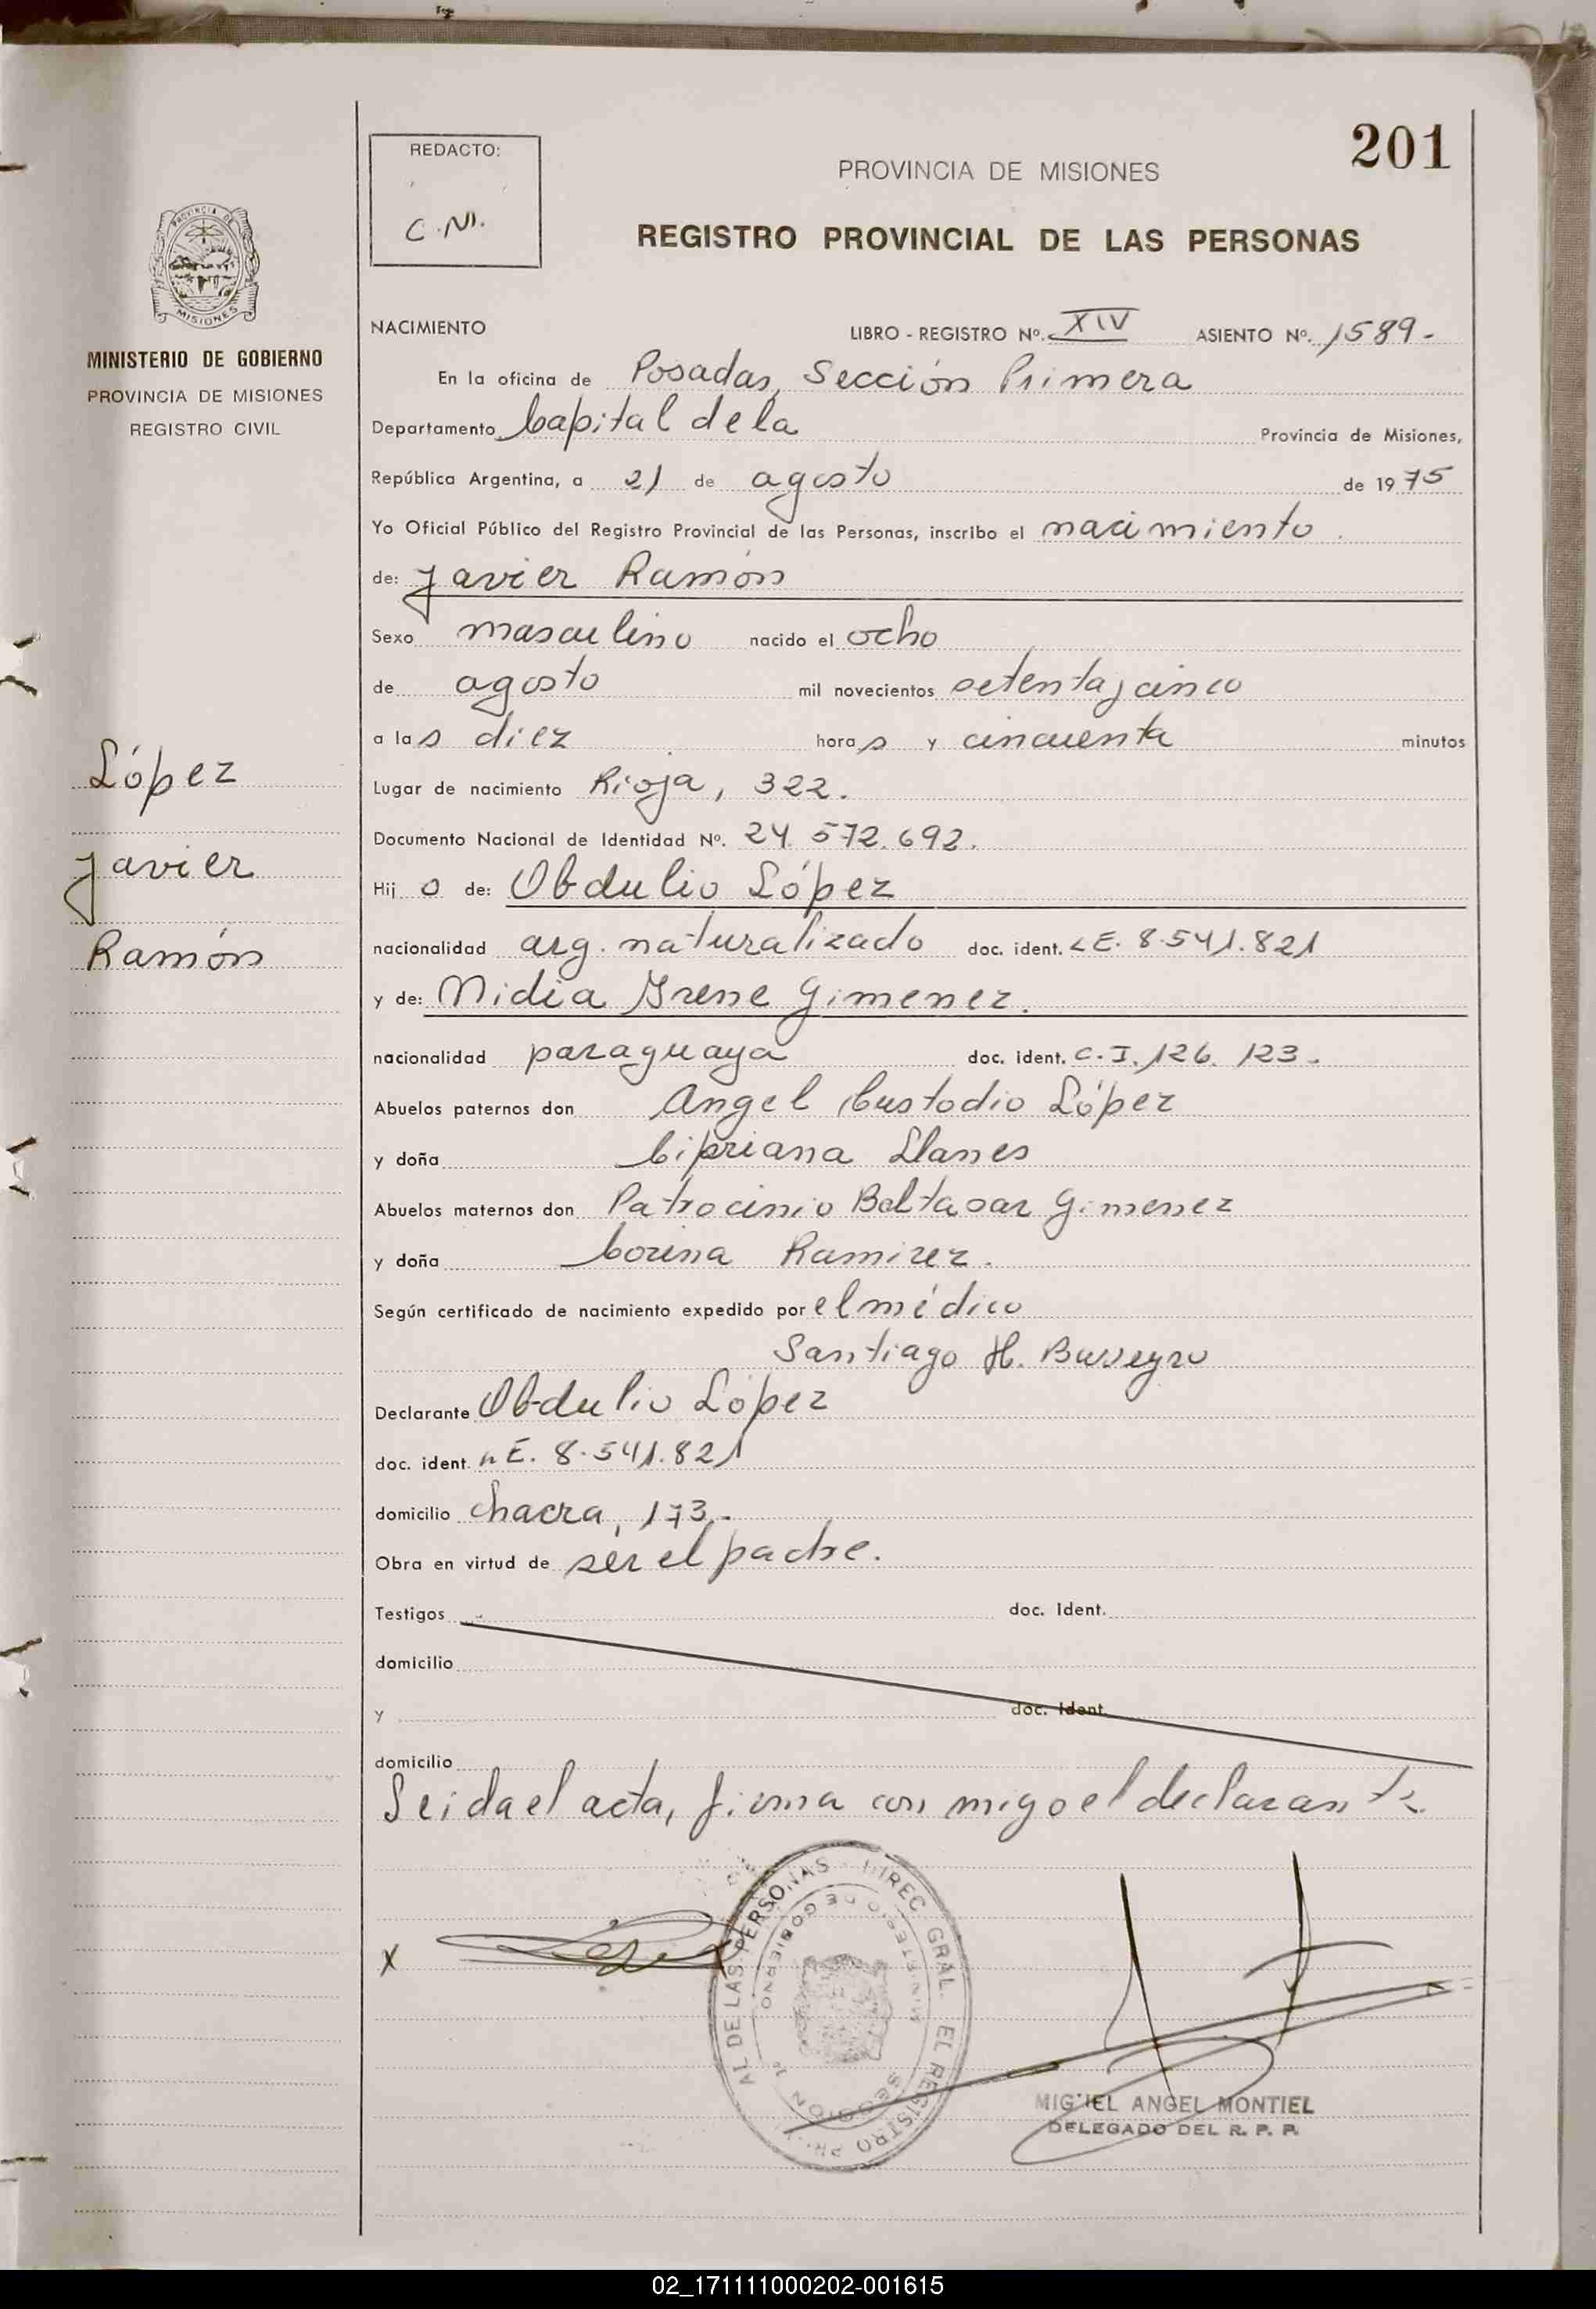 201
REDACTO:
C.M.
PROVINCIA DE MISIONES
REGISTRO PROVINCIAL DE LAS PERSONAS
MINISTERIO DE GOBIERNO
PROVINCIA DE MISIONES
REGISTRO CIVIL
López
Javier
Ramón
NACIMIENTO LIBRO - REGISTRO Nº. XIV ASIENTO Nº. 1589.-
En la oficina de Posadas, Sección Primera
Departamento Capital de la Provincia de Misiones,
República Argentina, a 21 de agosto de 1975
Yo Oficial Público del Registro Provincial de las Personas, inscribo el nacimiento.
de: Javier Ramón
Sexo masculino nacido el ocho
de agosto mil novecientos setenta y cinco
a las diez horas y cincuenta minutos
Lugar de nacimiento Rioja, 322.
Documento Nacional de Identidad Nº. 24.572.692.
Hijo de: Obdulio López
nacionalidad arg. naturalizado doc. ident. LE. 8.541.821
y de: Nidia Irene Gimenez.
nacionalidad paraguaya doc. ident. C.I. 126.123.-
Abuelos paternos don Angel Custodio López
y doña Cipriana Llanes
Abuelos maternos don Patrocinio Baltasar Gimenez
y doña Corina Ramirez.
Según certificado de nacimiento expedido por el médico
Santiago H.
Declarante Obdulio López
doc. ident. LE. 8.541.821
domicilio Chacra, 173.-
Obra en virtud de ser el padre.
Testigos doc. ident.
domicilio
y doc. ident.
domicilio
Leida el acta, firma con migo el declarante.
X
DIREC. GRAL. EL REGISTRO PROVINCIAL DE LAS PERSONAS
MINISTERIO DE GOBIERNO
SECCION 1ª
MIGUEL ANGEL MONTIEL
DELEGADO DEL R. P. P.
02_171111000202-001615